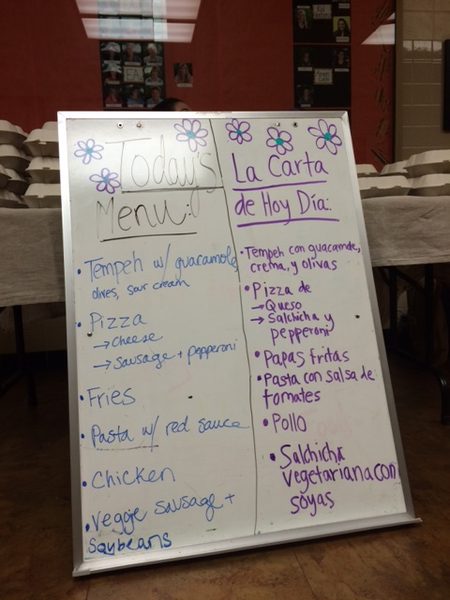 Today's
Menu:
• Tempeh w/ guacamole,
olives, sour cream
• Pizza
→ Cheese
→ Sausage + pepperoni
• Fries
• Pasta w/ red sauce
• Chicken
• Veggie sausage +
soybeans
La Carta
de Hoy Dia:
• Tempeh con guacamole,
crema, y olivas
• Pizza de
→ Queso
→ Salchicha y
pepperoni
• Papas fritas
• Pasta con salsa de
tomates
• Pollo
• Salchicha
vegetariana con
soyas